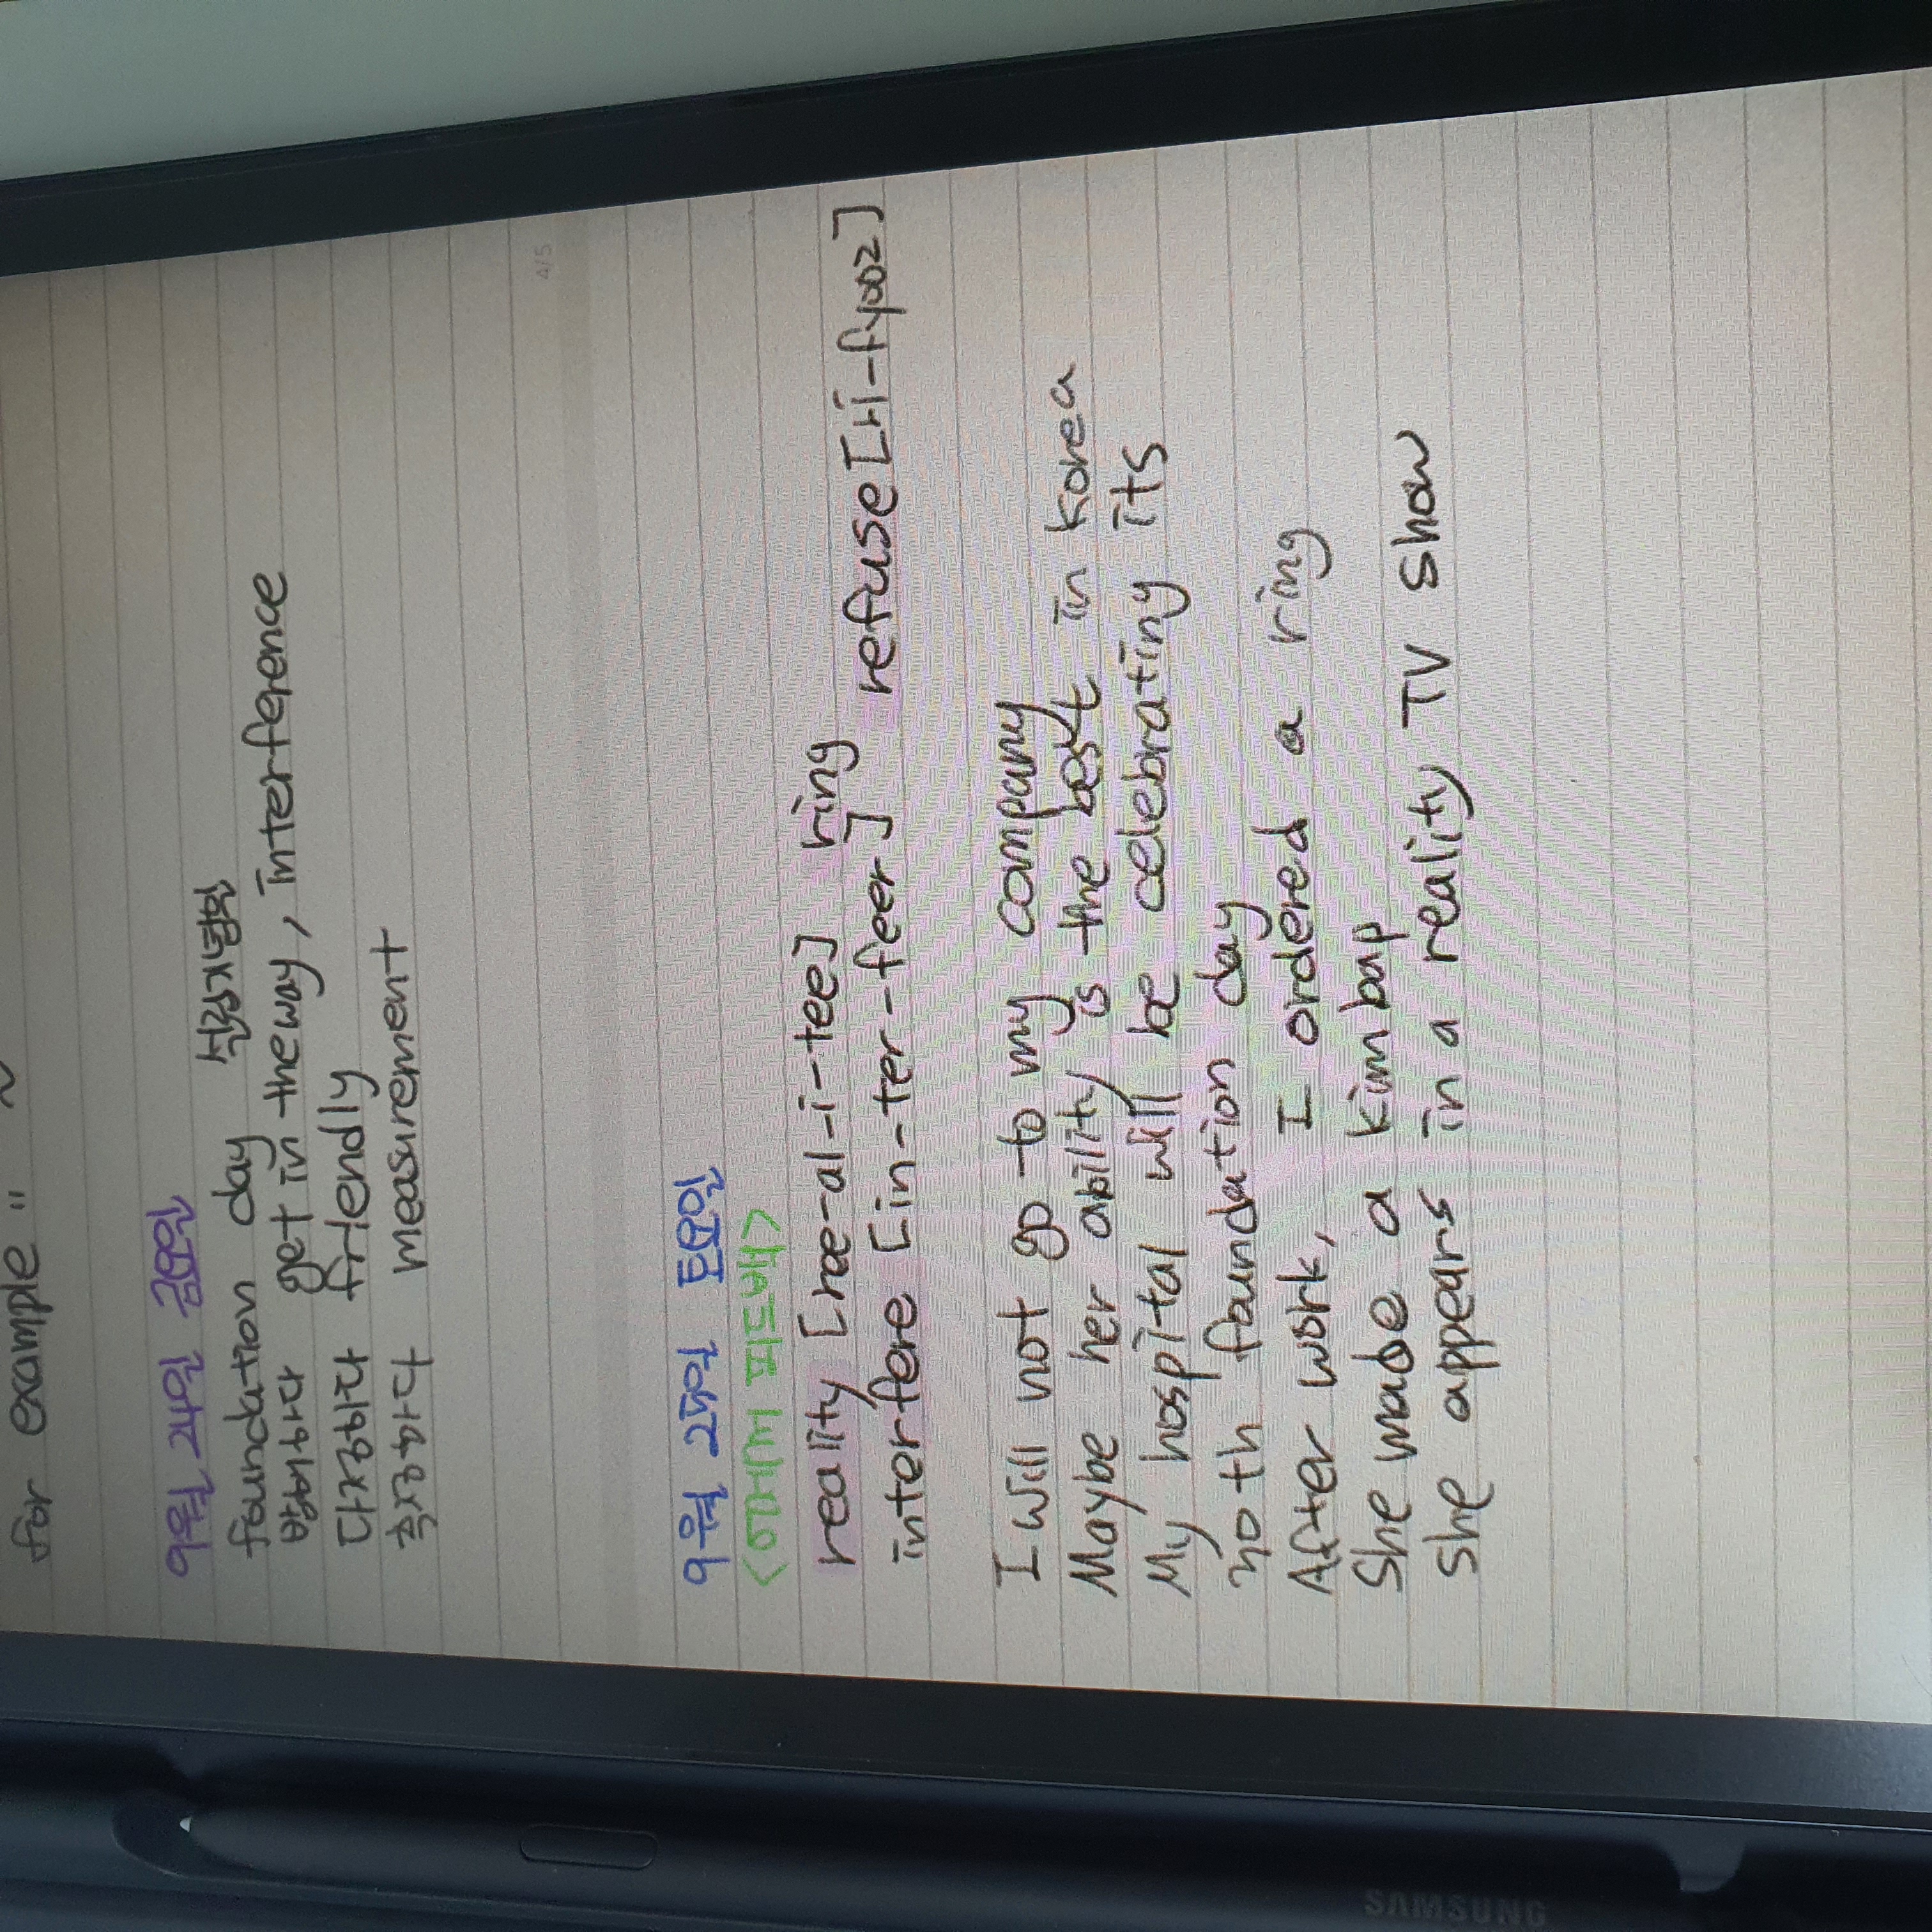 for example "~
9월 24일 금요일
foundation day 설립기념일
방해하다 get in the way, interference
다정하다 friendly
측정하다 measurement
4/5
9월 25일 토요일
<에세시 피드백>
reality [ree-al-i-tee] ring
interfere [in-ter-feer] refuse [ri-fyooz]
I will not go to my company
Maybe her ability is the best in korea
My hospital will be celebrating its
20th foundation day
After work, I ordered a ring
She made a kimbap
She appears in a reality TV show
SAMSUNG